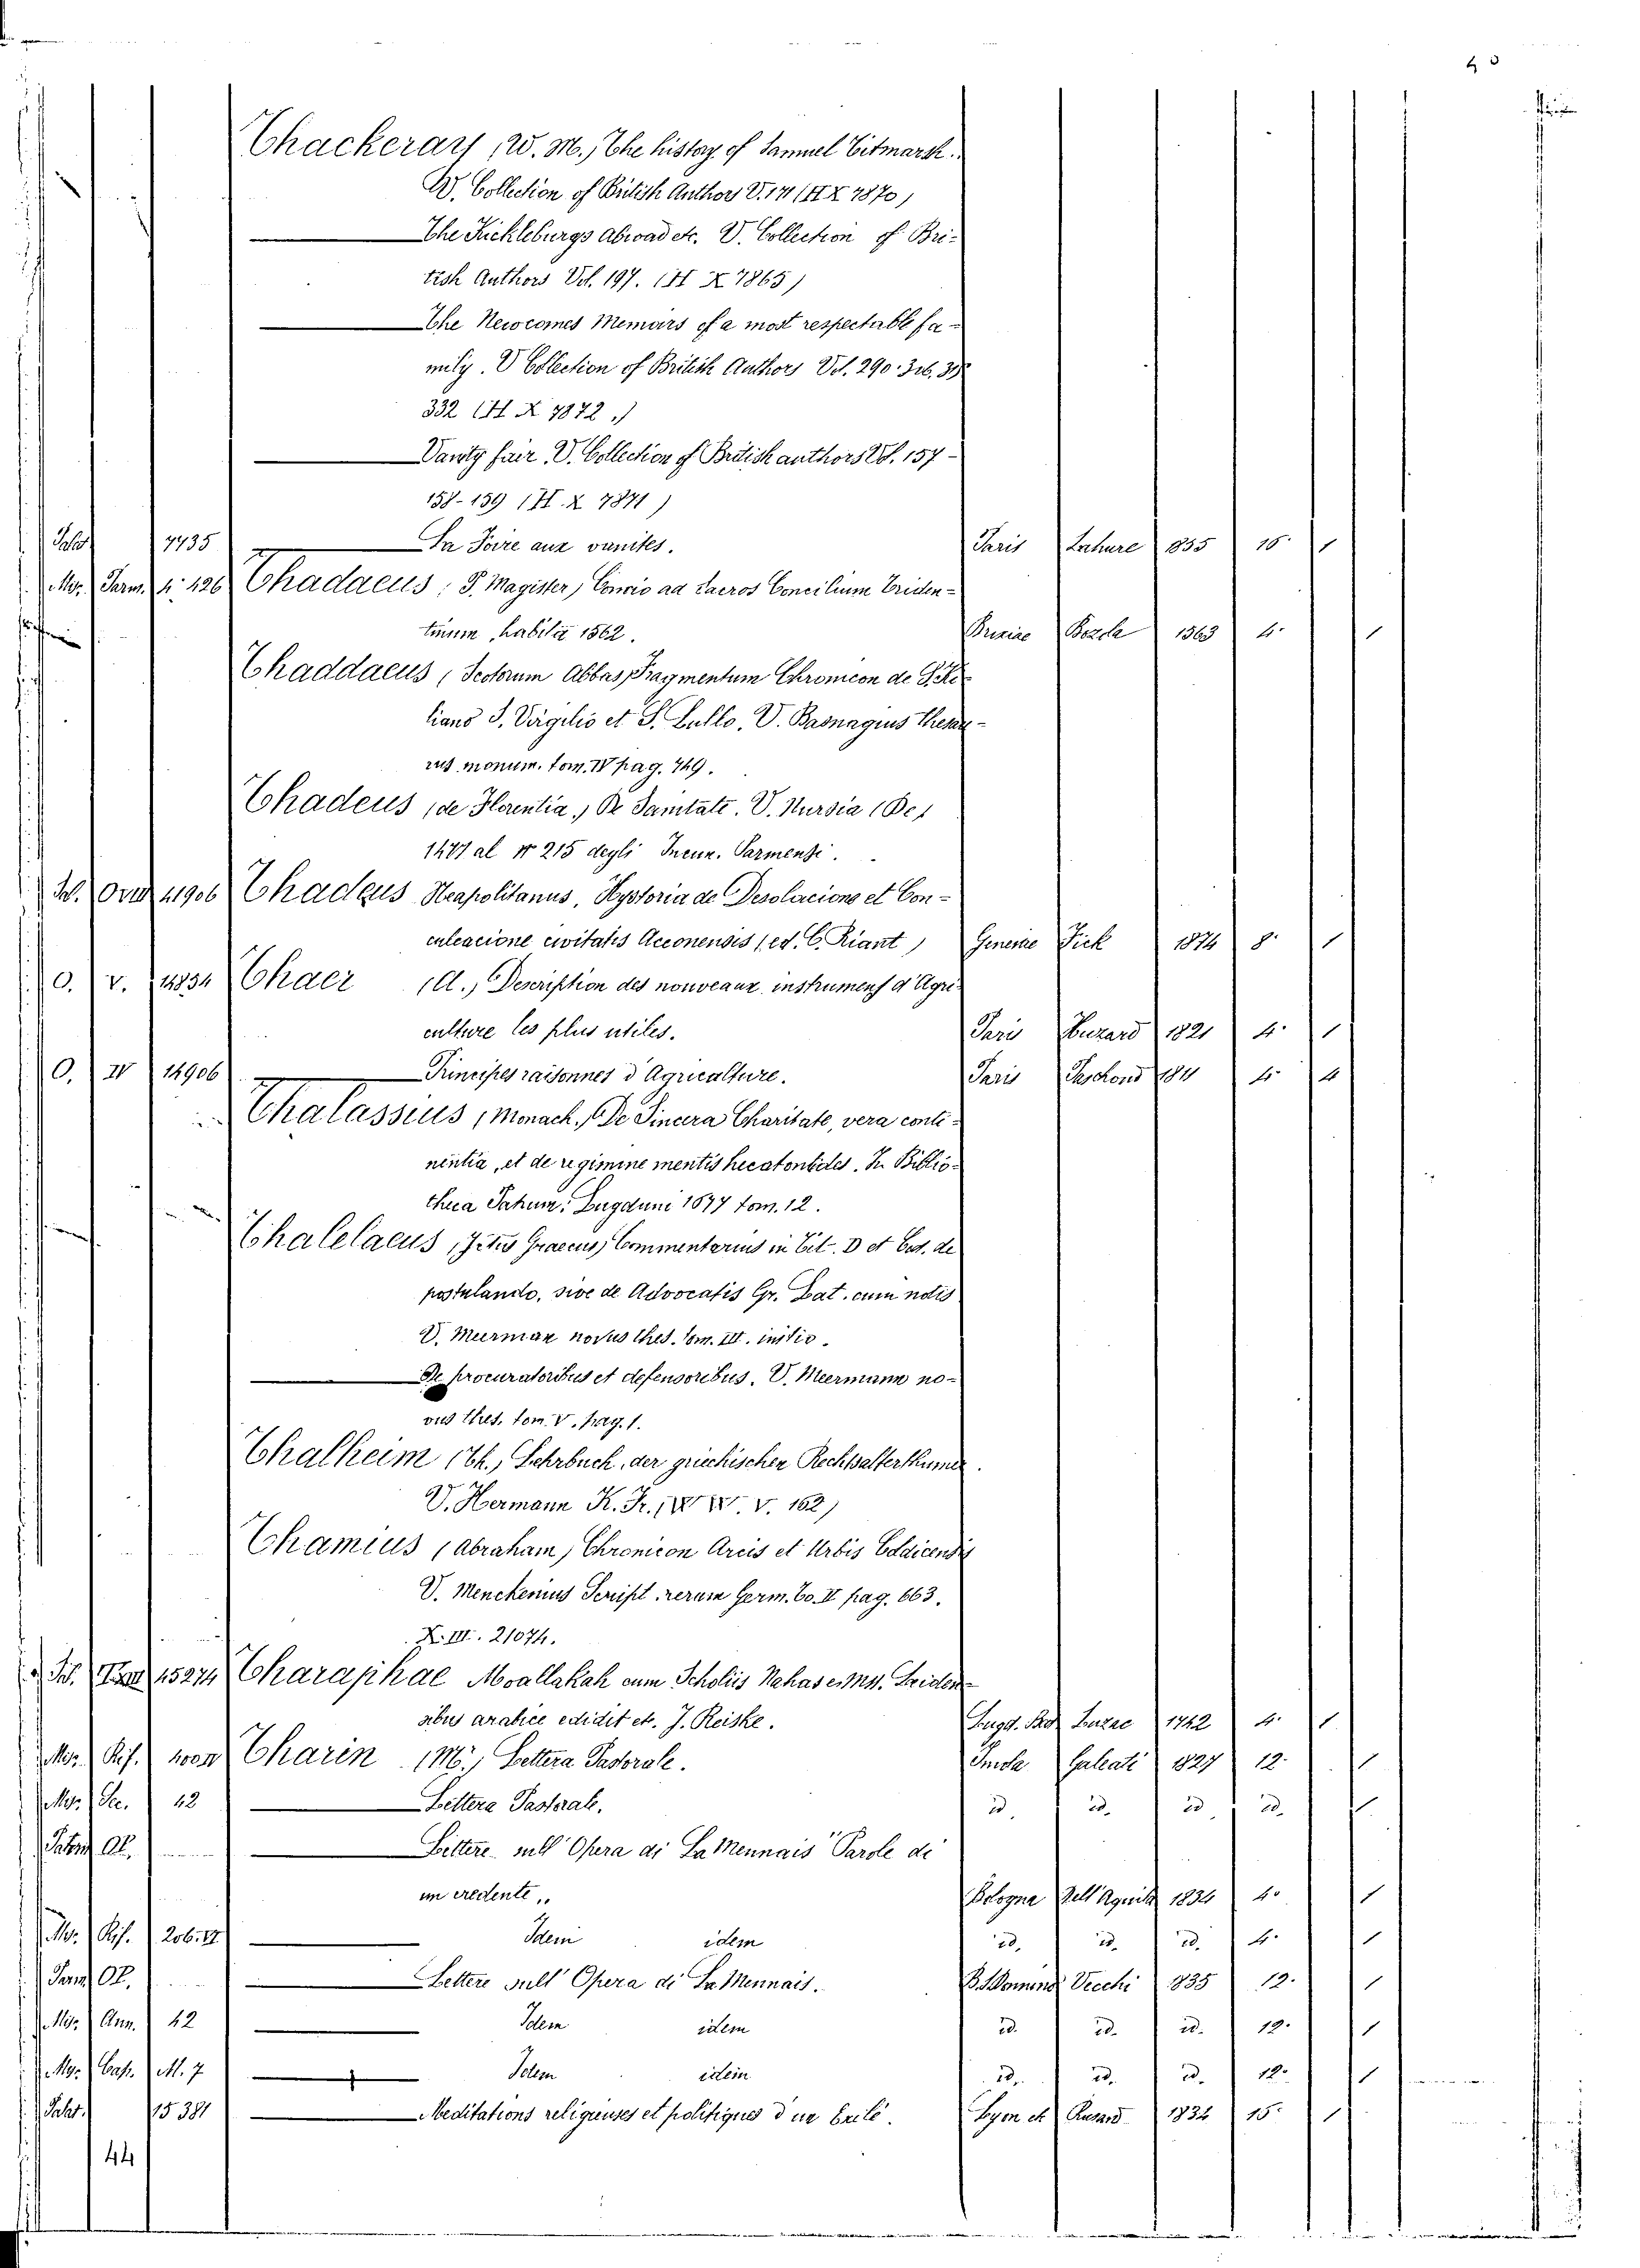 Thackeray (W. M.) The history of Samuel Titmarsh.
V. Collection of British Authors V. 171 (H X 7870)
The Kickleburgs abroad etc. V. Collection of Bri-
tish Authors Vol. 197. (H X 7865)
The Newcomes Memoirs of a most respectable fa-
mily. V Collection of British Authors Vol. 290. 306. 
332 (H X 7872.)
Vanity fair. V. Collection of British authors Vol. 157-
158-159 (H. X 7871)
7735 La Foire aux vanités. Paris Lahure 1855 16. 1
Thadaeus, P. Magister, Concio ad sacros Concilium Triden-
tinum, habita 1562. Brixiae 1563 4. 1
Thaddaeus (Scotorum Abbas) Fragmentum Chronicon de S. Ki-
liano S. Virgilio et S. Lullo. V. Basnagius Thesau-
rus monum. tom. IV pag. 749.
Thadeus (de Florentia,) De Sanitate. V. Nursia (De)
1477 al N 215 degli Incun. Parmensi.
41906 Thadeus Neapolitanus, Hystoria de Desolacione et Con-
culcacione civitatis Acconensis (ed. C. Riant) Genevae Fick 1874 8. 1
O. V. 14834 Thaer (A.,) Description des nouveaux instrumens d'Agri-
culture les plus utiles. Paris Huzard 1821 4. 1
O. IV 14906 Principes raisonnes d'Agriculture. Paris Paschoud 1811 4. 4
Thalassius, Monach. De Sincera Charitate, vera conti-
nentia, et de regimine mentis hecatontides. In Biblio-
theca Patrum. Lugduni 1677 tom. 12.
Thalelaeus, Jctus Graecus, Commentarius in Tit. D et Cod. de
postulando, sive de Advocatis Gr. Lat. cum notis
V. Meerman novus thes. tom. III. initio.
De procuratoribus et defensoribus. V. Meermann no-
vus thes. tom. V. pag. 1.
Thalheim (Th.,) Lehrbuch der griechischen Rechtsalterthümer.
V. Hermann K. Fr. V. 162)
Thamius (Abraham) Chronicon Arcis et Urbis Coldicensis
V. Menckenius Script. rerum Germ. To. II pag. 663.
X. III. 21074.
15274 Tharaphae Moallakah cum Scholiis Nahas e Mss. Leiden-
sibus arabice edidit etc. J. Reiske. Lugd. Bat Luzac 1742 4. 1
Mor. Rif. Tharin (M.), Lettera Pastorale. Imola Galeati 1827 12. 1
Mor. Sec. 42 Lettera Pastorale. id. id. id id. 1
Lettere sull' Opera di La Mennais "Parole di
un credente,, Bologna Dell'Aquila 1834 4. 1
Mor. Rif. 206. 17 Idem idem id. id. id. 4. 1
Lettere sull' Opera di La Mennais. Vecchi 1835 12. 1
Mor. Ann. 42 Idem idem id. id. id. 12. 1
Mor. Cap. M. 7 Idem idem id. id. id. 12. 1
15381 Meditations religieuses et politiques d'un Exilé. Lyon et Rusand 1834 15. 1
44